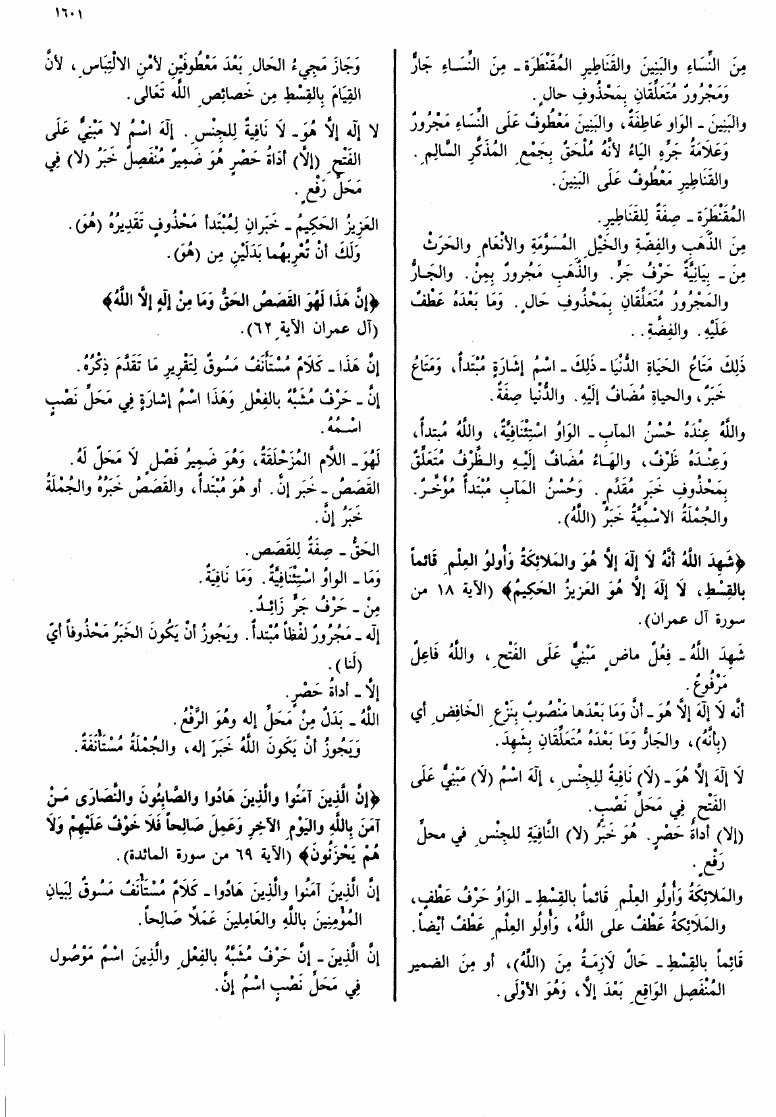 ١٦٠١
مِنَ النِّسَاءِ والبَنِينَ والقَنَاطِيرِ المُقَنْطَرَةِ ـ مِنَ النِّسَاءِ جَارٌّ
وَمَجْرُورٌ مُتَعَلِّقَانِ بِمَحْذُوفِ حالٍ.
والبَنِينَ ـ الوَاو عَاطِفَةٌ، والبَنِينَ مَعْطُوفٌ عَلَى النِّسَاءِ مَجْرُورٌ
وَعَلَامَةُ جَرِّهِ اليَاءُ لأَنَّهُ مُلْحَقٌ بِجَمْعِ المُذَكَّرِ السَّالِمِ.
والقَنَاطِيرِ مَعْطُوفٌ عَلَى البَنِينَ.
المُقَنْطَرَةِ ـ صِفَةٌ لِلقَنَاطِيرِ.
مِنَ الذَّهَبِ والفِضَّةِ والخَيْلِ المُسَوَّمَةِ والأَنْعَامِ والحَرْثِ
مِنَ ـ بَيَانِيَّةٌ حَرْفُ جَرٍّ. والذَّهَبِ مَجْرُورٌ بِمِنْ. والجَـارُّ
والمَجْرُورُ مُتَعَلِّقَانِ بِمَحْذُوفِ حَالٍ. وَمَا بَعْدَهُ عَطْفٌ
عَلَيْهِ. والفِضَّةِ. .
ذَلِكَ مَتَاعُ الحَيَاةِ الدُّنْيَا ـ ذَلِكَ ـ اسْمُ إِشَارَةٍ مُبْتَدأ، وَمَتَاعُ
خَبَرٌ، والحياةِ مُضَافٌ إِلَيْهِ. والدُّنْيا صِفَةٌ.
واللَّهُ عِنْدَهُ حُسْنُ المآبِ ـ الوَاوُ اسْتِئْنَافِيَّةٌ، واللَّهُ مُبتدأ،
وَعِنْـدَهُ ظَرْفٌ، والهَـاءُ مُضَافٌ إِلَيْـهِ والـظَّرْفُ مُتَعَلِّقٌ
بِمَحْذُوفِ خَبَرٍ مُقَدَّمٍ. وَحُسْنُ المَآبِ مُبْتَدأٌ مُؤَخَّـرٌ.
والجُمْلَةُ الاسْمِيَّةُ خَبَرُ (اللَّهُ).
﴿شَهِدَ اللَّهُ أَنَّهُ لَا إِلَهَ إِلَّا هُوَ والمَلَائِكَةُ وَأُولُو العِلْمِ قَائِماً
بالقِسْطِ، لَا إِلَهَ إِلَّا هُوَ العَزِيزُ الحَكِيمُ﴾ (الآية ١٨ من
سورة آل عمران).
شَهِدَ اللَّهُ ـ فِعْلٌ ماضٍ مَبْنِيٌّ عَلَى الفَتْحِ، واللَّهُ فَاعِلٌ
مَرْفُوعٌ.
أَنَّه لَا إِلَهَ إِلَّا هُوَ ـ أَنَّ وَمَا بَعْدَها مَنْصُوبٌ بِنَزْعِ الخَافِضِ أي
(بِأَنَّهُ)، والجَارُّ وَمَا بَعْدَهُ مُتَعَلِّقَانِ بِشَهِدَ.
لَا إِلَهَ إِلَّا هُوَ ـ (لَا) نَافِيةٌ لِلجِنْسِ، إِلَهَ اسْمُ (لَا) مَبْنِيٌّ عَلَى
الفَتْحِ فِي مَحَلِّ نَصْبٍ.
(إلا) أَدَاةُ حَصْرٍ. هُوَ خَبَرُ (لا) النَّافِيَةِ لِلجِنْسِ في محلِّ
رَفْعٍ.
والمَلَائِكَةُ وَأُولُو العِلْمِ قَائماً بالقِسْطِ ـ الوَاوُ حَرْفُ عَطْفٍ،
والمَلَائِكَةُ عَطْفٌ على اللَّهُ، وَأُولُو العِلْمِ عَطْفٌ أيْضاً.
قَائِماً بالقِسْطِ ـ حَالٌ لَازِمَةٌ مِنَ (اللَّهُ)، أو مِنَ الضمير
المُنْفَصِلِ الوَاقِعِ بَعْدَ إِلَّا، وَهُوَ الأَوْلَى.
وَجَازَ مَجِيءُ الحَالِ بَعْدَ مَعْطُوفَيْنِ لأَمْنِ الالْتِبَاسِ، لأَنَّ
القِيَامَ بِالقِسْطِ مِن خَصَائِصِ اللَّه تَعَالى.
لَا إلَه إلَّا هُوَ ـ لَا نَافِيَةٌ لِلجِنْسِ. إِلَهَ اسْمُ لَا مَبْنِيٌّ عَلَى
الفَتْحِ (إلَّا) أدَاةُ حَصْرٍ هُوَ ضَمِيرٌ مُنْفَصِلٌ خَبَرُ (لَا) فِي
مَحَلِّ رَفْعٍ.
العَزِيزُ الحَكِيمُ ـ خَبَرانِ لِمُبْتَدأ مَحْذُوفٍ تَقْدِيرُهُ (هُوَ).
وَلَكَ أنْ تُعْرِبَهُما بَدَلَيْنِ مِن (هُوَ).
﴿إِنَّ هَذَا لَهُوَ القَصَصُ الحَقُّ وَمَا مِنْ إِلَهٍ إِلَّا اللَّهُ﴾
(آل عمران الآية ٦٢).
إِنَّ هَذَا ـ كَلَامٌ مُسْتَأْنَفٌ مَسُوقٌ لِتَقْرِيرِ مَا تَقَدَّمَ ذِكْرُهُ.
إِنَّ ـ حَرْفٌ مُشَبَّهٌ بالفِعْلِ وَهَذَا اسْمُ إشارَةٍ فِي مَحَلِّ نَصْبٍ
اسْـمُهُ.
لَهُوَ ـ اللَّام المُزَحْلَقَةُ، وَهُوَ ضَمِيرُ فَصْلٍ لَا مَحَلَّ لَهُ.
القَصَصُ ـ خَبَر إنَّ. أو هُوَ مُبْتَدأٌ، والقَصَصُ خَبَرُهُ والجُمْلَةُ
خَبَرُ إنَّ.
الحَقُّ ـ صِفَةٌ لِلقَصَصِ.
وَمَا ـ الواوُ اسْتِئْنَافِيَّةٌ. وَمَا نَافِيَةٌ.
مِنْ ـ حَرْفُ جَرٍّ زَائِـدٌ.
إلَه ـ مَجْرُورٌ لَفْظاً مُبْتَدأٌ. وَيَجُوزُ أنْ يَكُونَ الخَبَرُ مَحْذُوفاً أيْ
(لَنَا).
إلَّا ـ أداةُ حَصْرٍ.
اللَّهُ ـ بَدَلٌ مِنْ مَحَلِّ إله وهُوَ الرَّفْعُ.
وَيَجُوزُ أنْ يَكُونَ اللَّهُ خَبَرَ إله، والجُمْلَةُ مُسْتَأْنَفَةٌ.
﴿إِنَّ الَّذِينَ آمَنُوا والَّذِينَ هَادُوا والصَّابِئُونَ والنَّصَارَى مَـنْ
آمَنَ بِاللَّهِ واليَوْمِ الآخِرِ وَعَمِلَ صَالِحاً فَلَا خَوْفٌ عَلَيْهِمْ وَلَا
هُمْ يَحْزَنُونَ﴾ (الآية ٦٩ من سورة المائدة).
إِنَّ الَّذِينَ آمَنُوا والَّذِينَ هَادُوا ـ كَلَامٌ مُسْتَأْنَفٌ مَسُوقٌ لِبَيَانِ
المُؤْمِنِينَ بِاللَّهِ والعَامِلِينَ عَمَلًا صَالِحاً.
إِنَّ الَّذِينَ ـ إِنَّ حَرْفٌ مُشَبَّهٌ بالفِعْلِ والَّذِينَ اسْمٌ مَوْصُول
فِي مَحَلِّ نَصْبٍ اسْمُ إنَّ.